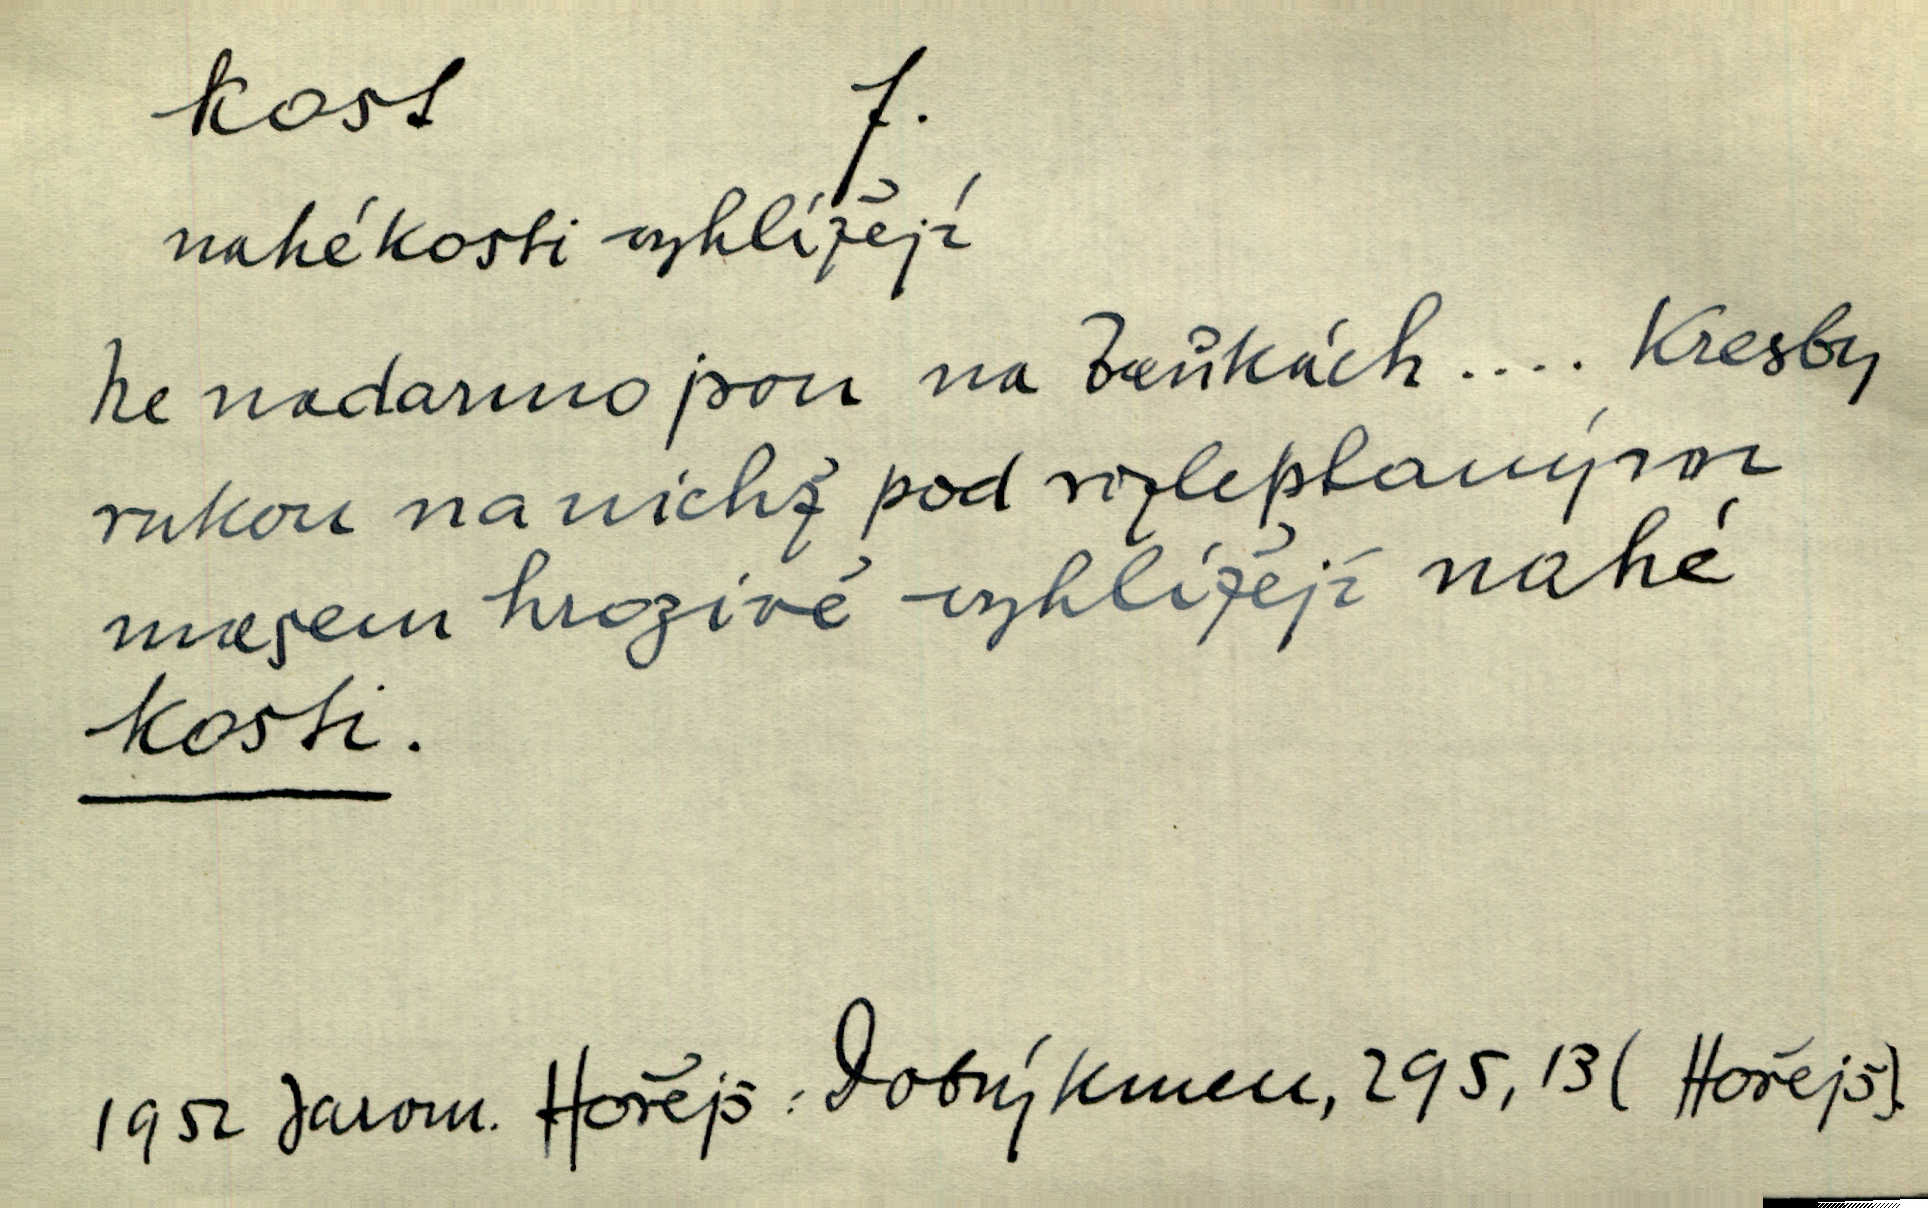 kost f.
nahé kosti vyhlížejí
Ne nadarmo jsou na baňkách .... Kresby
rukou na nichž pod rozleptaným
masem hrozivě vyhlížejí nahé
kosti.
1952 Jarom. Hořejš: Dobrý kmen, 295, 13 (Hořejš).